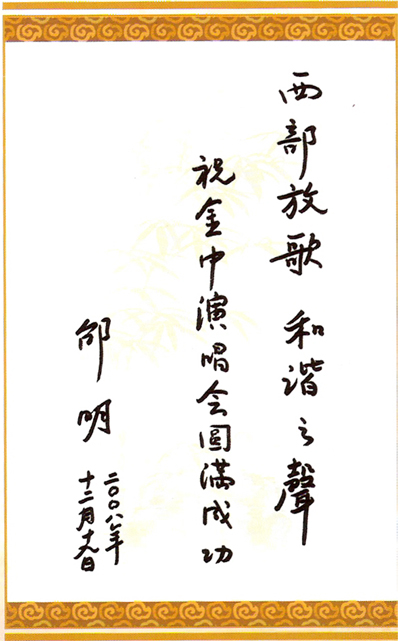 西部放歌 和谐之聲
祝金中演唱会圆满成功
邵明
二〇〇八年
十二月十九日